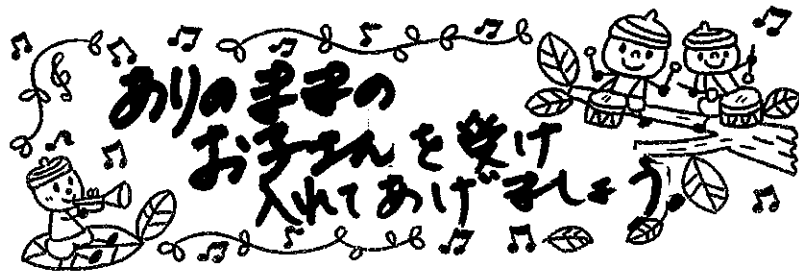 ありのままの
お子さんを受け
入れてあげましょう。